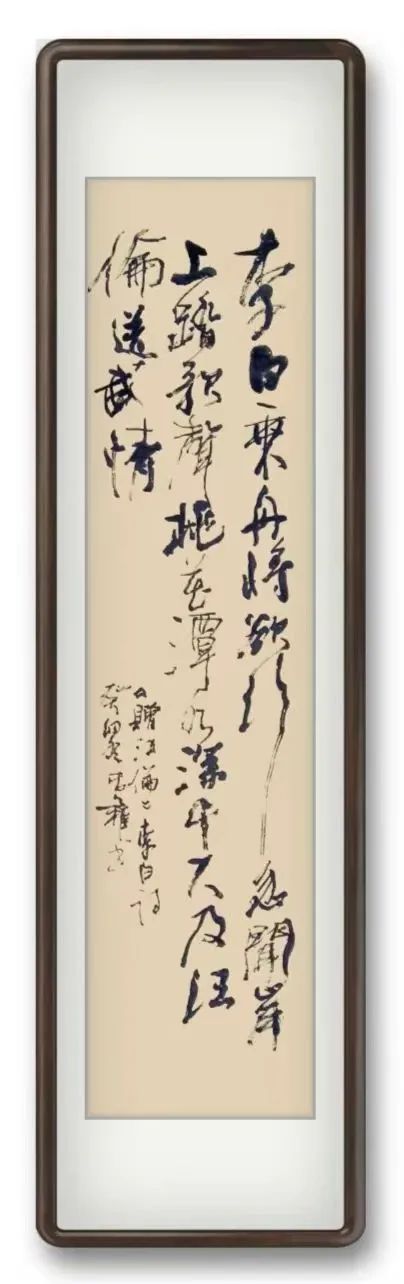 李白乘舟將欲行忽聞岸
上踏歌聲桃花潭水深千尺及汪
倫送我情
《贈汪倫》李白詩
癸卯冬書